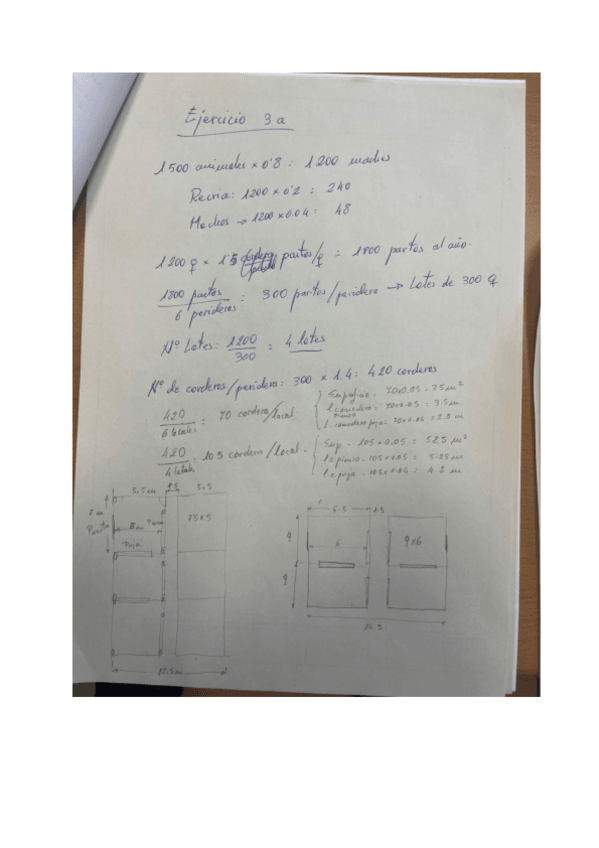 Ejercicio 3a
1500 animales x 0'8 : 1200 madres
Recria: 1200 x 0'2 : 240
Machos → 1200 x 0.04 : 48
1200 ♀ x 1'5 partos/♀ = 1800 partos al año.
1800 partos
6 parideras
: 300 partos/paridera → Lotes de 300 ♀
Nº Lotes: 1200
300
: 4 lotes
Nº de corderos/paridera: 300 x 1.4 : 420 corderos
420
6 locales
= 70 cordero/local
Superficie. 70x0.05 = 3.5 m²
l. comedero = 70x0.05 = 3.5m
pienso
L. comedero paja = 70x0.04 = 2.8 m
420
4
= 105 cordero/local.
Sup - 105x0.05 = 52.5 m²
lc pienso - 105x0.05 = 5.25 m
lc paja - 105x0.04 = 4.2 m
5.5m 5.5
Puerta
Paja
75x5
12.5m
6.5
9
6
9x6
9
14.5